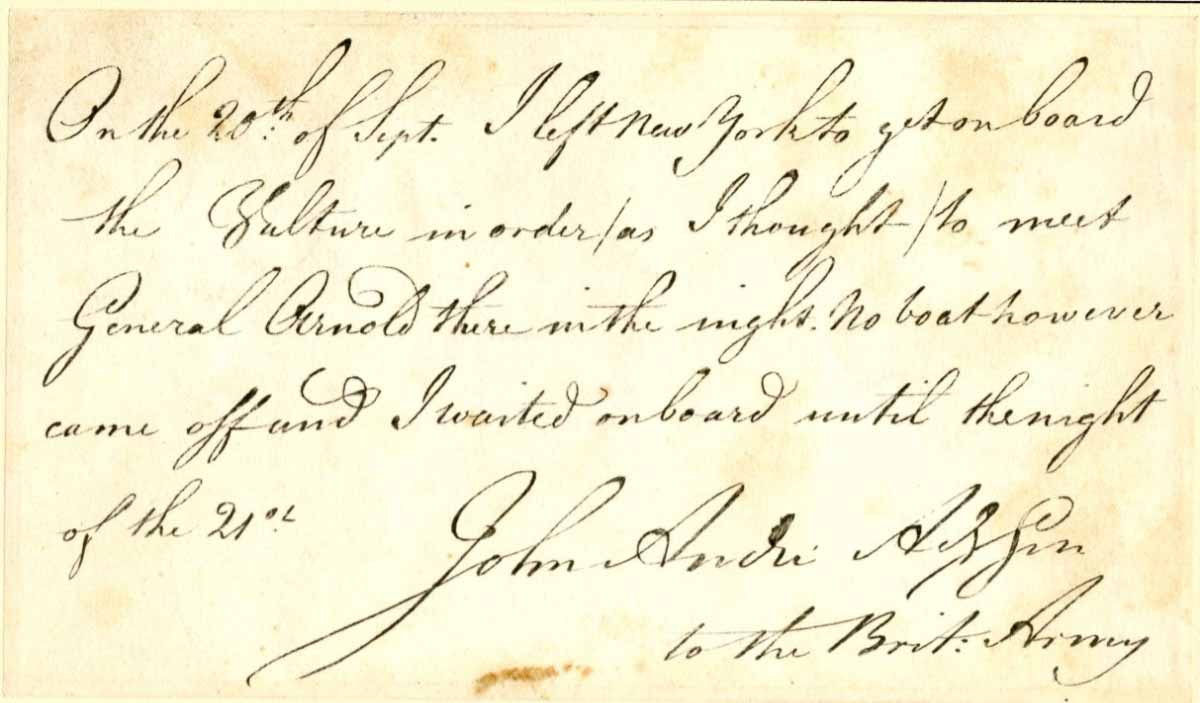 On the 20th: of Sept. I left New York to get on board
the Vulture in order /as I thought /to meet
General Arnold there in the night. No boat however
came off and I waited on board until the night
of the 21st.
John André Adj Gen
to the Brit: Army